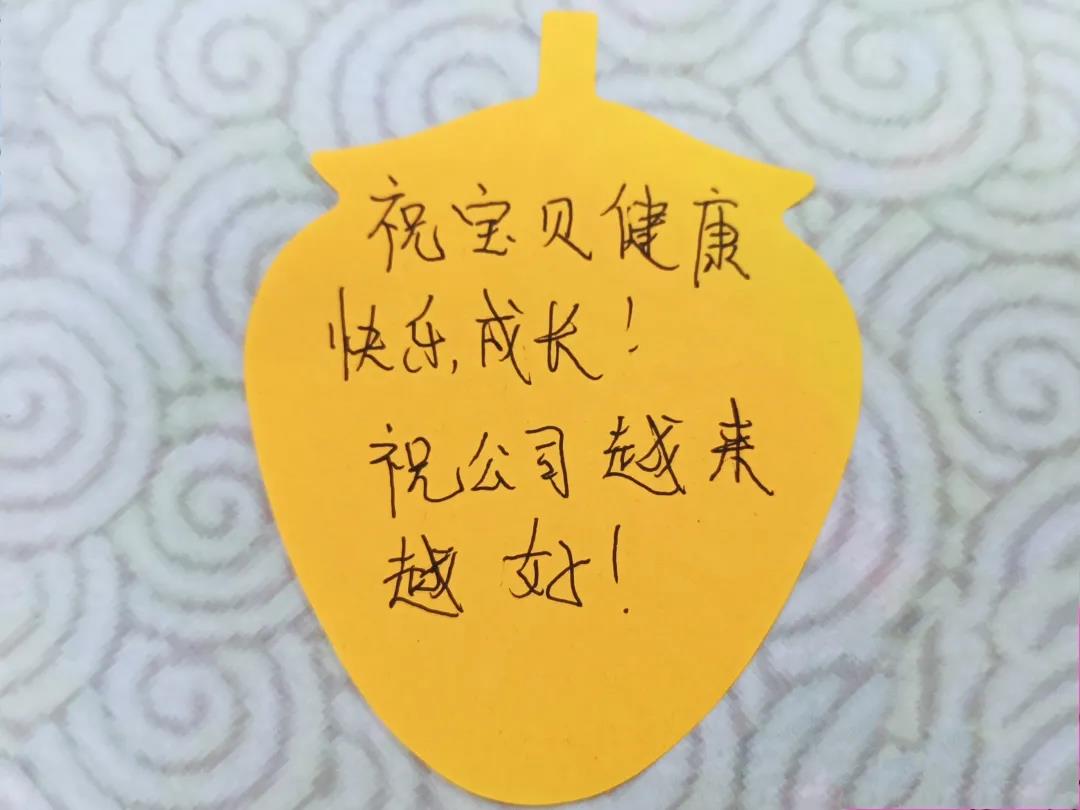 祝宝贝健康
快乐,成长!
祝公司越来
越好!